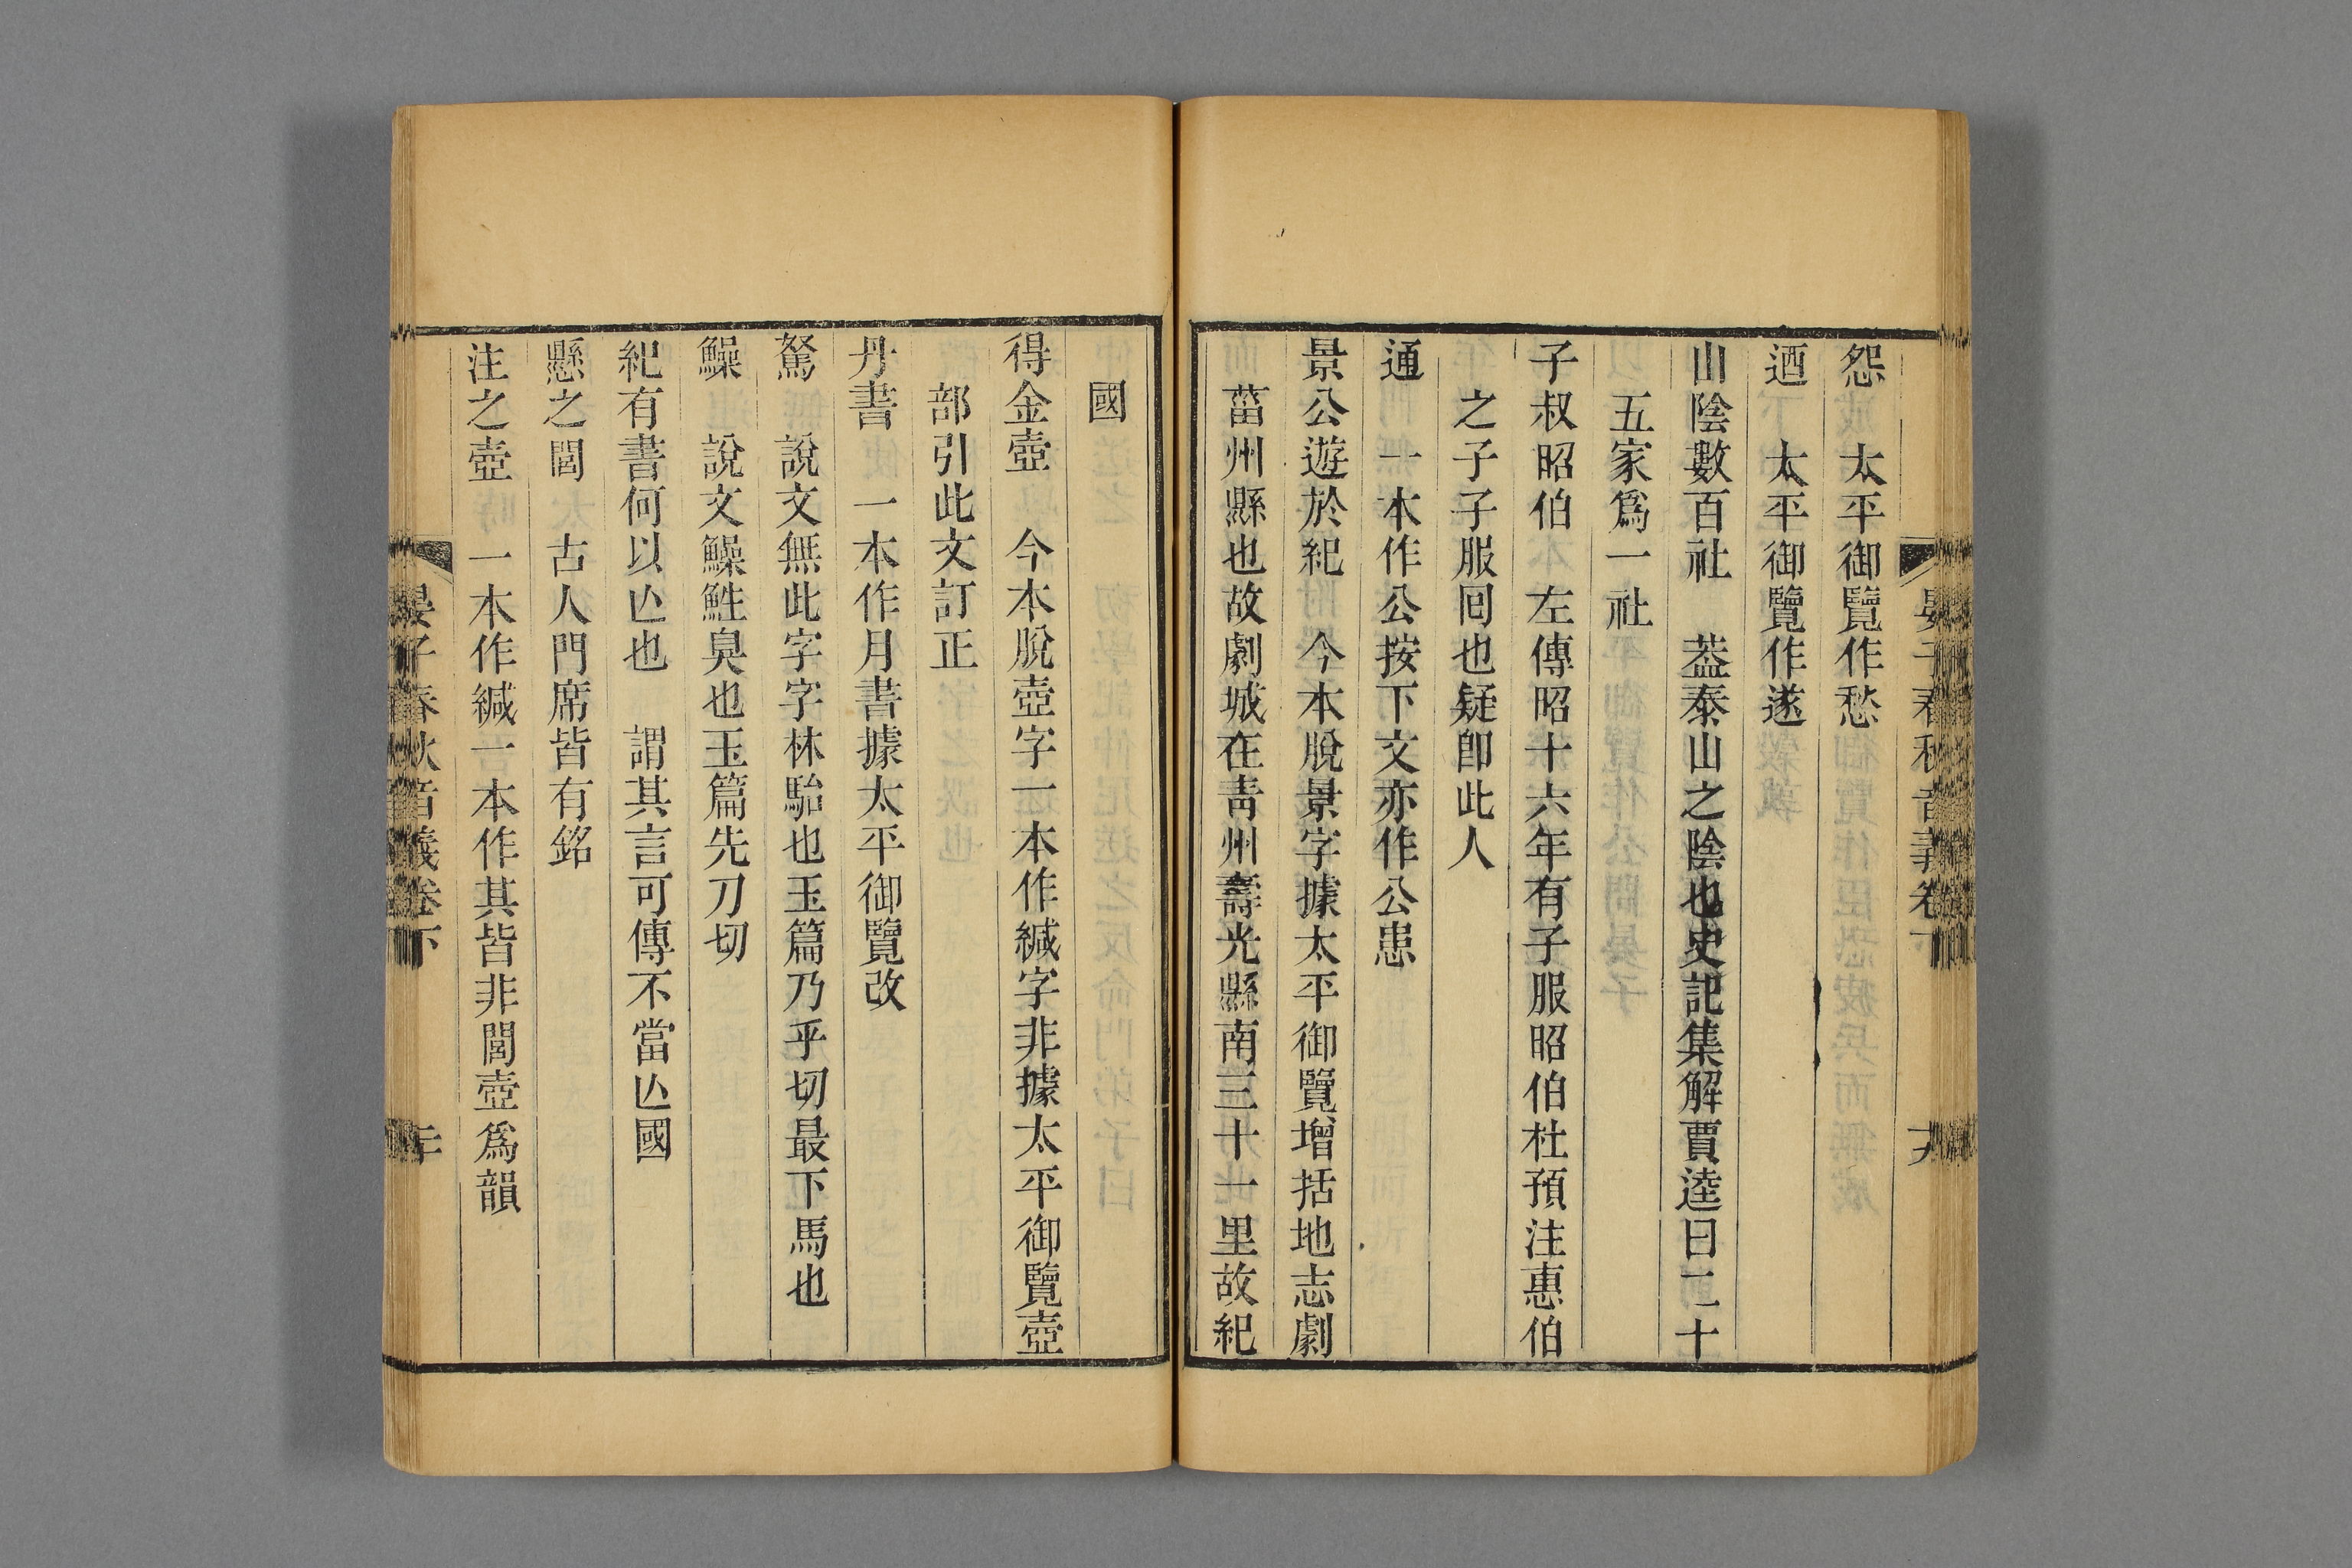 怨　太平御覽作愁
迺　太平御覽作遂
山陰數百社　葢泰山之陰也史記集解賈逵曰二十
五家爲一社
子叔昭伯　左傳昭十六年有子服昭伯杜預注惠伯
之子子服囘也疑卽此人
通　一本作公按下文亦作公患
景公遊於紀　今本脫景字據太平御覽增括地志劇
菑州縣也故劇城在靑州壽光縣南三十一里故紀
國
得金壺　今本脫壺字一本作緘字非據太平御覽壺
部引此文訂正
丹書　一本作月書據太平御覽改
駑　說文無此字字林駘也玉篇乃乎切最下馬也
鱢　說文鱢鮏臭也玉篇先刀切
紀有書何以亾也　謂其言可傳不當亾國
懸之閭　古人門席皆有銘
注之壺　一本作緘一本作其皆非閭壺爲韻
晏子春秋音義卷下